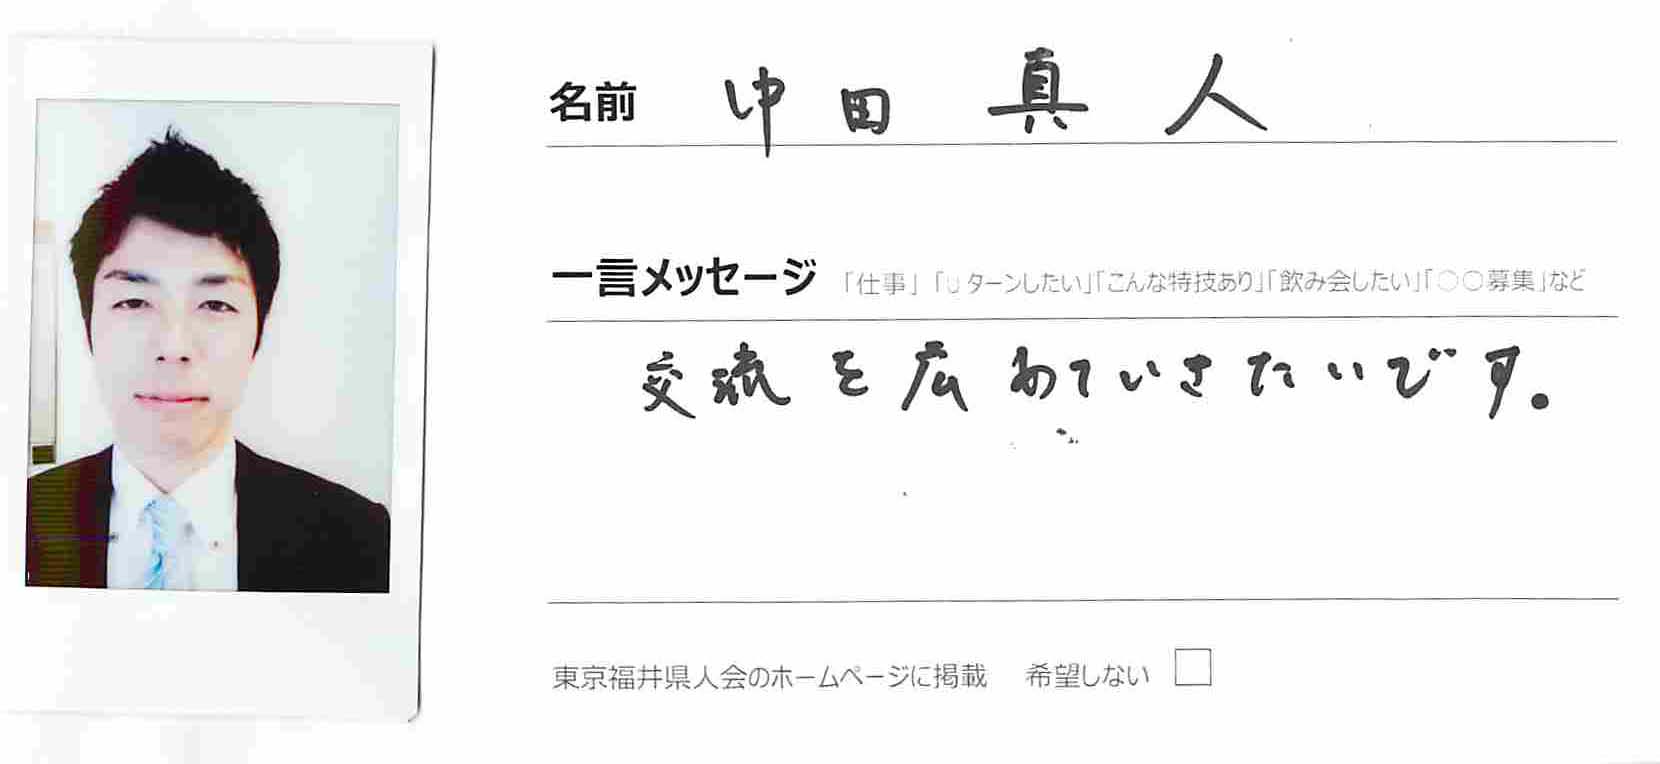 名前 中田 真人
一言メッセージ 「仕事」「Uターンしたい」「こんな特技あり」「飲み会したい」「○○募集」など
交流を広めていきたいです。
東京福井県人会のホームページに掲載 希望しない □